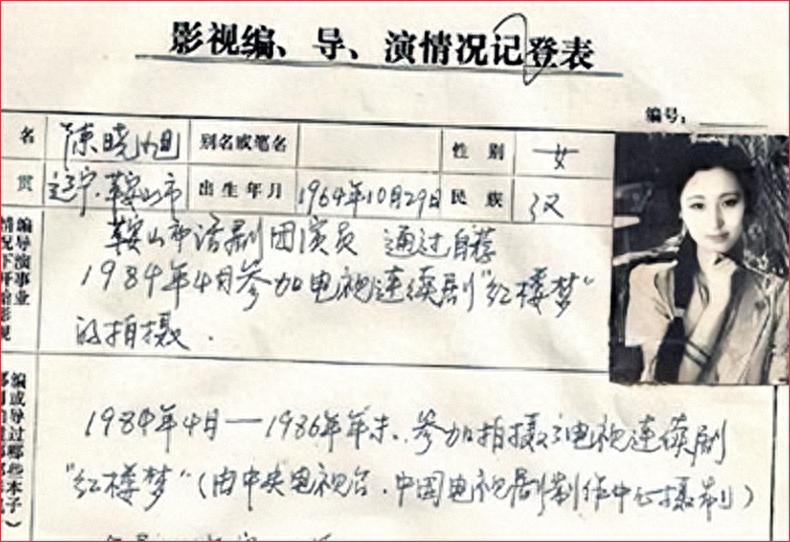 影视编、导、演情况记登表
编号：
名 陈晓旭 别名或笔名 性别 女
贯 辽宁.鞍山市 出生年月 1964年10月29日 民族 汉
鞍山市话剧团演员 通过自荐
1984年4月参加电视连续剧"红楼梦"
的拍摄.
编导演事业
情况下开始影视
1984年4月—1986年年末.参加拍摄了电视连续剧
"红楼梦"(由中央电视台.中国电视剧制作中心摄制)
编或导过哪些本子